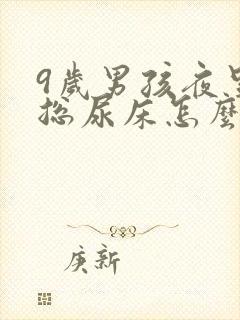 9歲男孩夜里
总尿床怎麽
庚新